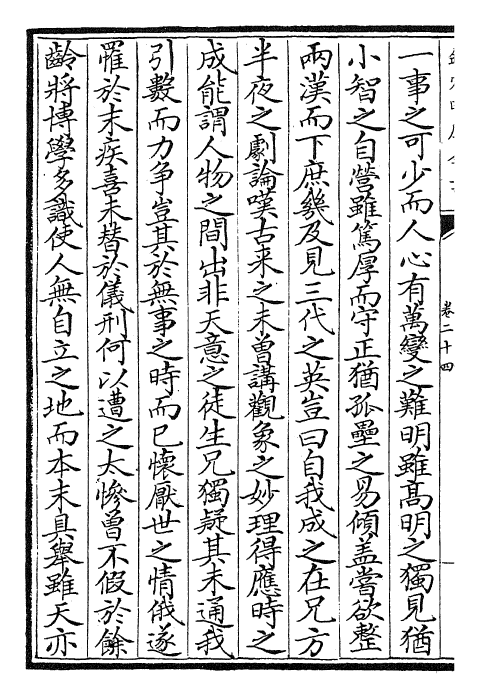 卷二十四
一事之可少而人心有萬變之難明雖高明之獨見猶
小智之自營雖篤厚而守正猶孤壘之易傾盖嘗欲整
兩漢而下庶幾及見三代之英豈曰自我成之在兄方
半夜之劇論嘆古來之未曾講觀象之妙理得應時之
成能謂人物之間出非天意之徒生兄獨疑其未通我
引數而力争豈其於無事之時而已懷厭世之情俄遂
罹於末疾喜未替於儀刑何以遭之太慘曾不假於餘
齡將博學多識使人無自立之地而本末具舉雖天亦